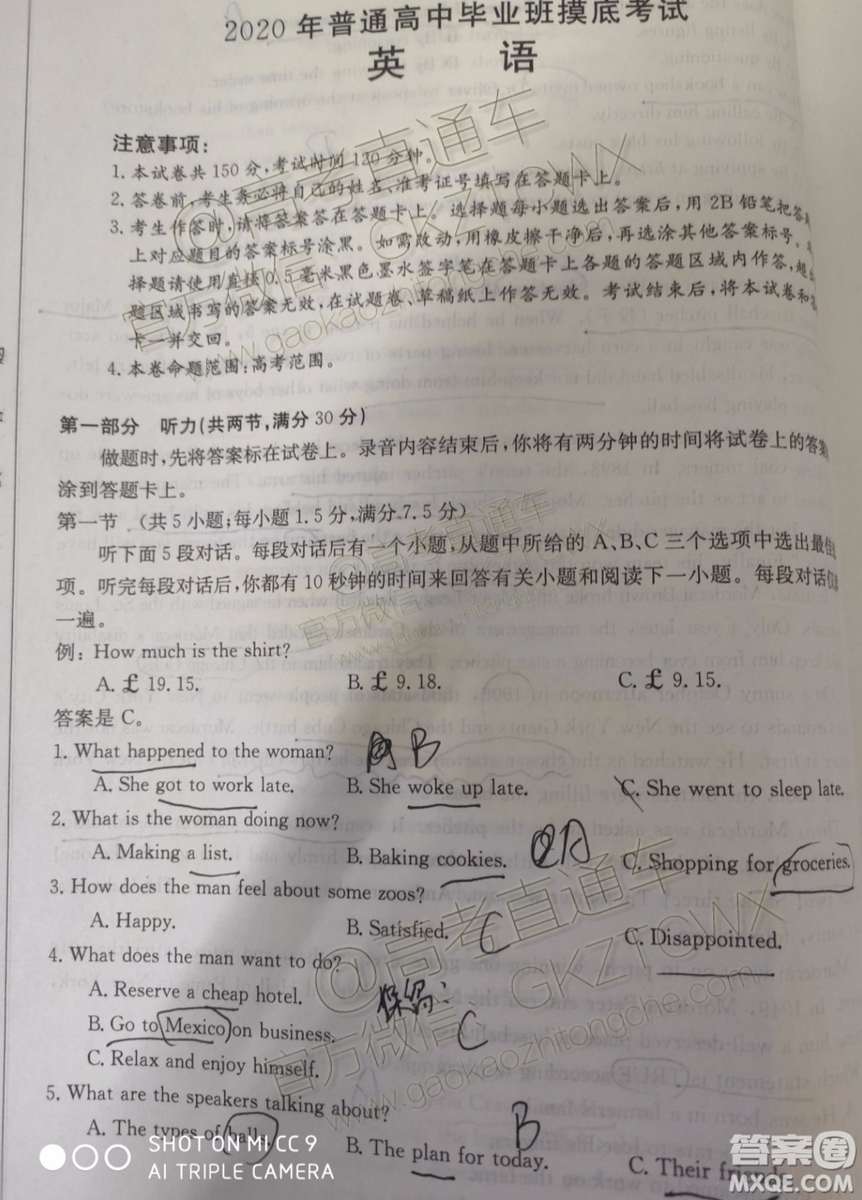 2020 年普通高中毕业班摸底考试
英 语
注意事项：
1. 本试卷共 150 分，考试时间 120 分钟。
2. 答卷前，考生务必将自己的姓名、准考证号填写在答题卡上。
3. 考生作答时，请将答案答在答题卡上。选择题每小题选出答案后，用 2B 铅笔把答
上对应题目的答案标号涂黑。如需改动，用橡皮擦干净后，再选涂其他答案标号。
择题请使用直径 0.5 毫米黑色墨水签字笔在答题卡上各题的答题区域内作答，超
题区域书写的答案无效，在试题卷、草稿纸上作答无效。考试结束后，将本试卷和答
卡一并交回。
4. 本卷命题范围：高考范围。
第一部分 听力(共两节，满分 30 分)
做题时，先将答案标在试卷上。录音内容结束后，你将有两分钟的时间将试卷上的答案
涂到答题卡上。
第一节 (共 5 小题；每小题 1.5 分，满分 7.5 分)
听下面 5 段对话。每段对话后有一个小题，从题中所给的 A、B、C 三个选项中选出最佳
项。听完每段对话后，你都有 10 秒钟的时间来回答有关小题和阅读下一小题。每段对话仅
一遍。
例：How much is the shirt?
A. £ 19.15. B. £ 9.18. C. £ 9.15.
答案是 C。
1. What happened to the woman? B
A. She got to work late. B. She woke up late. C. She went to sleep late.
2. What is the woman doing now?
A. Making a list. B. Baking cookies. A C. Shopping for groceries.
3. How does the man feel about some zoos?
A. Happy. B. Satisfied. C C. Disappointed.
4. What does the man want to do?
A. Reserve a cheap hotel.
B. Go to Mexico on business. C
C. Relax and enjoy himself.
5. What are the speakers talking about? B
A. The types of balls. B. The plan for today. C. Their friends.
@高考直通车
官方微信：GKZTCWX
www.gaokaozhitongche.com
SHOT ON MI CC 9
AI TRIPLE CAMERA
答案圈
MXQE.COM